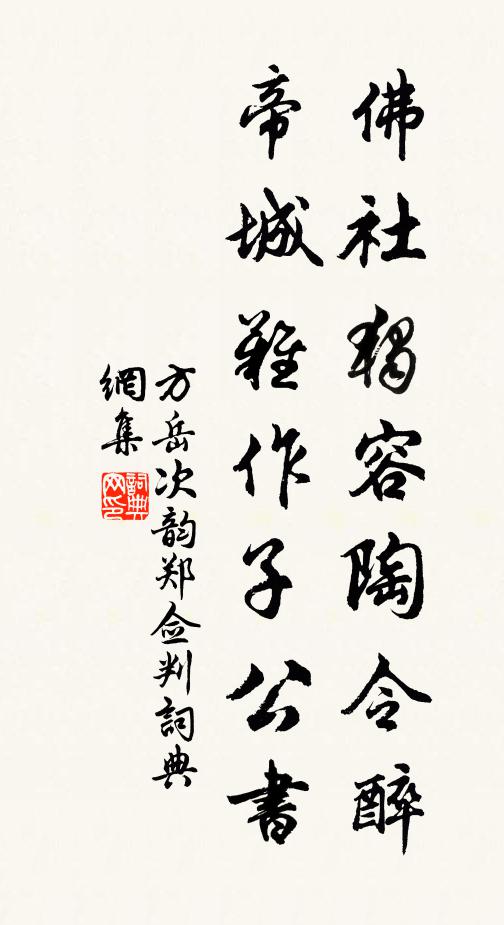 佛社獨容陶令醉
帝城難作子公書
方岳次韵郑佥判詞典
網集
詞典
网印